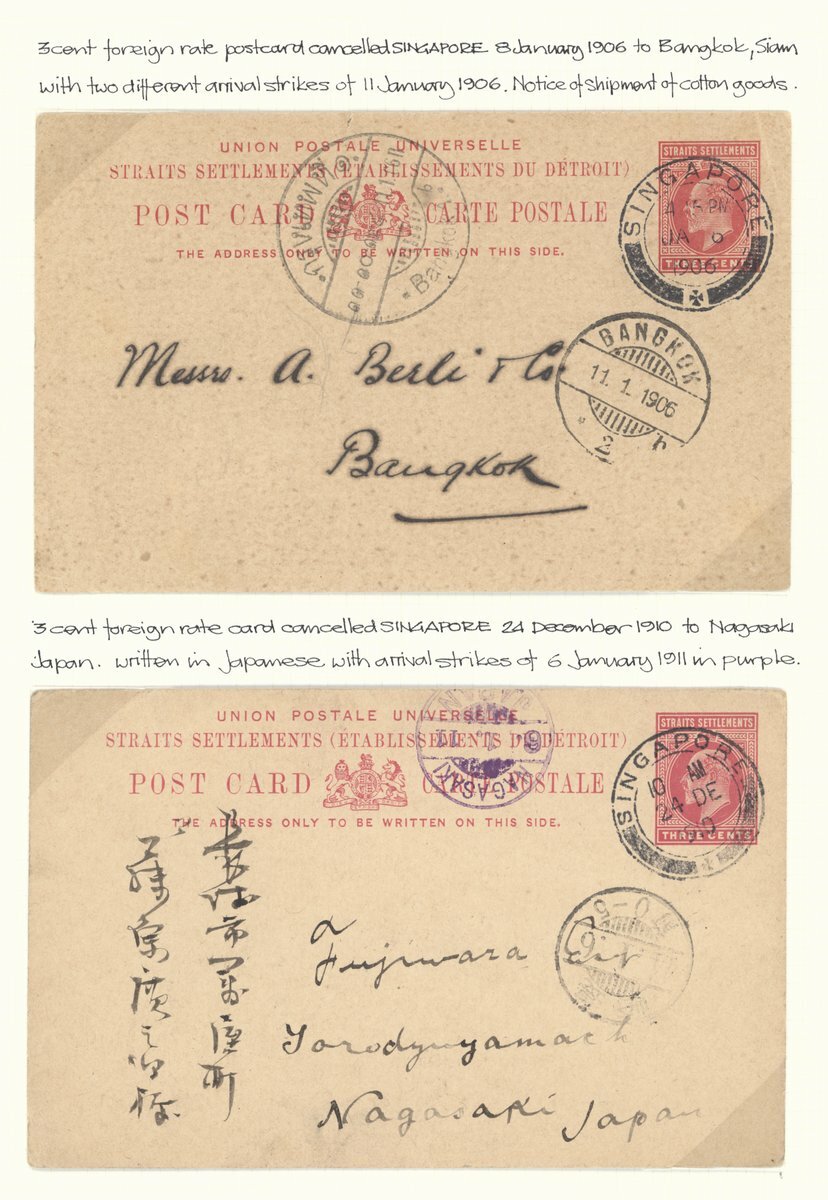 3 cent foreign rate postcard cancelled SINGAPORE 8 January 1906 to Bangkok, Siam
with two different arrival strikes of 11 January 1906. Notice of shipment of cotton goods.
UNION POSTALE UNIVERSELLE
STRAITS SETTLEMENTS (ÉTABLISSEMENTS DU DÉTROIT)
POST CARD CARTE POSTALE
THE ADDRESS ONLY TO BE WRITTEN ON THIS SIDE.
STRAITS SETTLEMENTS
THREE CENTS
SINGAPORE
PM
JA
1906
Bangkok
BANGKOK
11. 1. 1906
2
Messrs. A. Berli & Co.
Bangkok
3 cent foreign rate card cancelled SINGAPORE 24 December 1910 to Nagasaki
Japan. written in Japanese with arrival strikes of 6 January 1911 in purple.
UNION POSTALE UNIVERSELLE
STRAITS SETTLEMENTS (ÉTABLISSEMENTS DU DÉTROIT)
POST CARD CARTE POSTALE
THE ADDRESS ONLY TO BE WRITTEN ON THIS SIDE.
STRAITS SETTLEMENTS
THREE CENTS
SINGAPORE
10 AM
24 DE
NAGASAKI
JAPAN
6. 1. 11
長崎市萬屋町
藤原廣之助様
Fujiwara
Yorodyuyamach
Nagasaki Japan